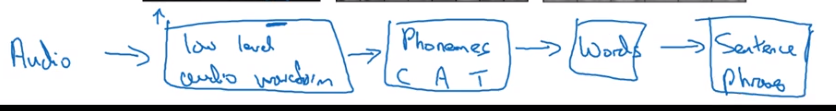 Audio → low level audio waveform → Phonemes C A T → Words → Sentence phrases